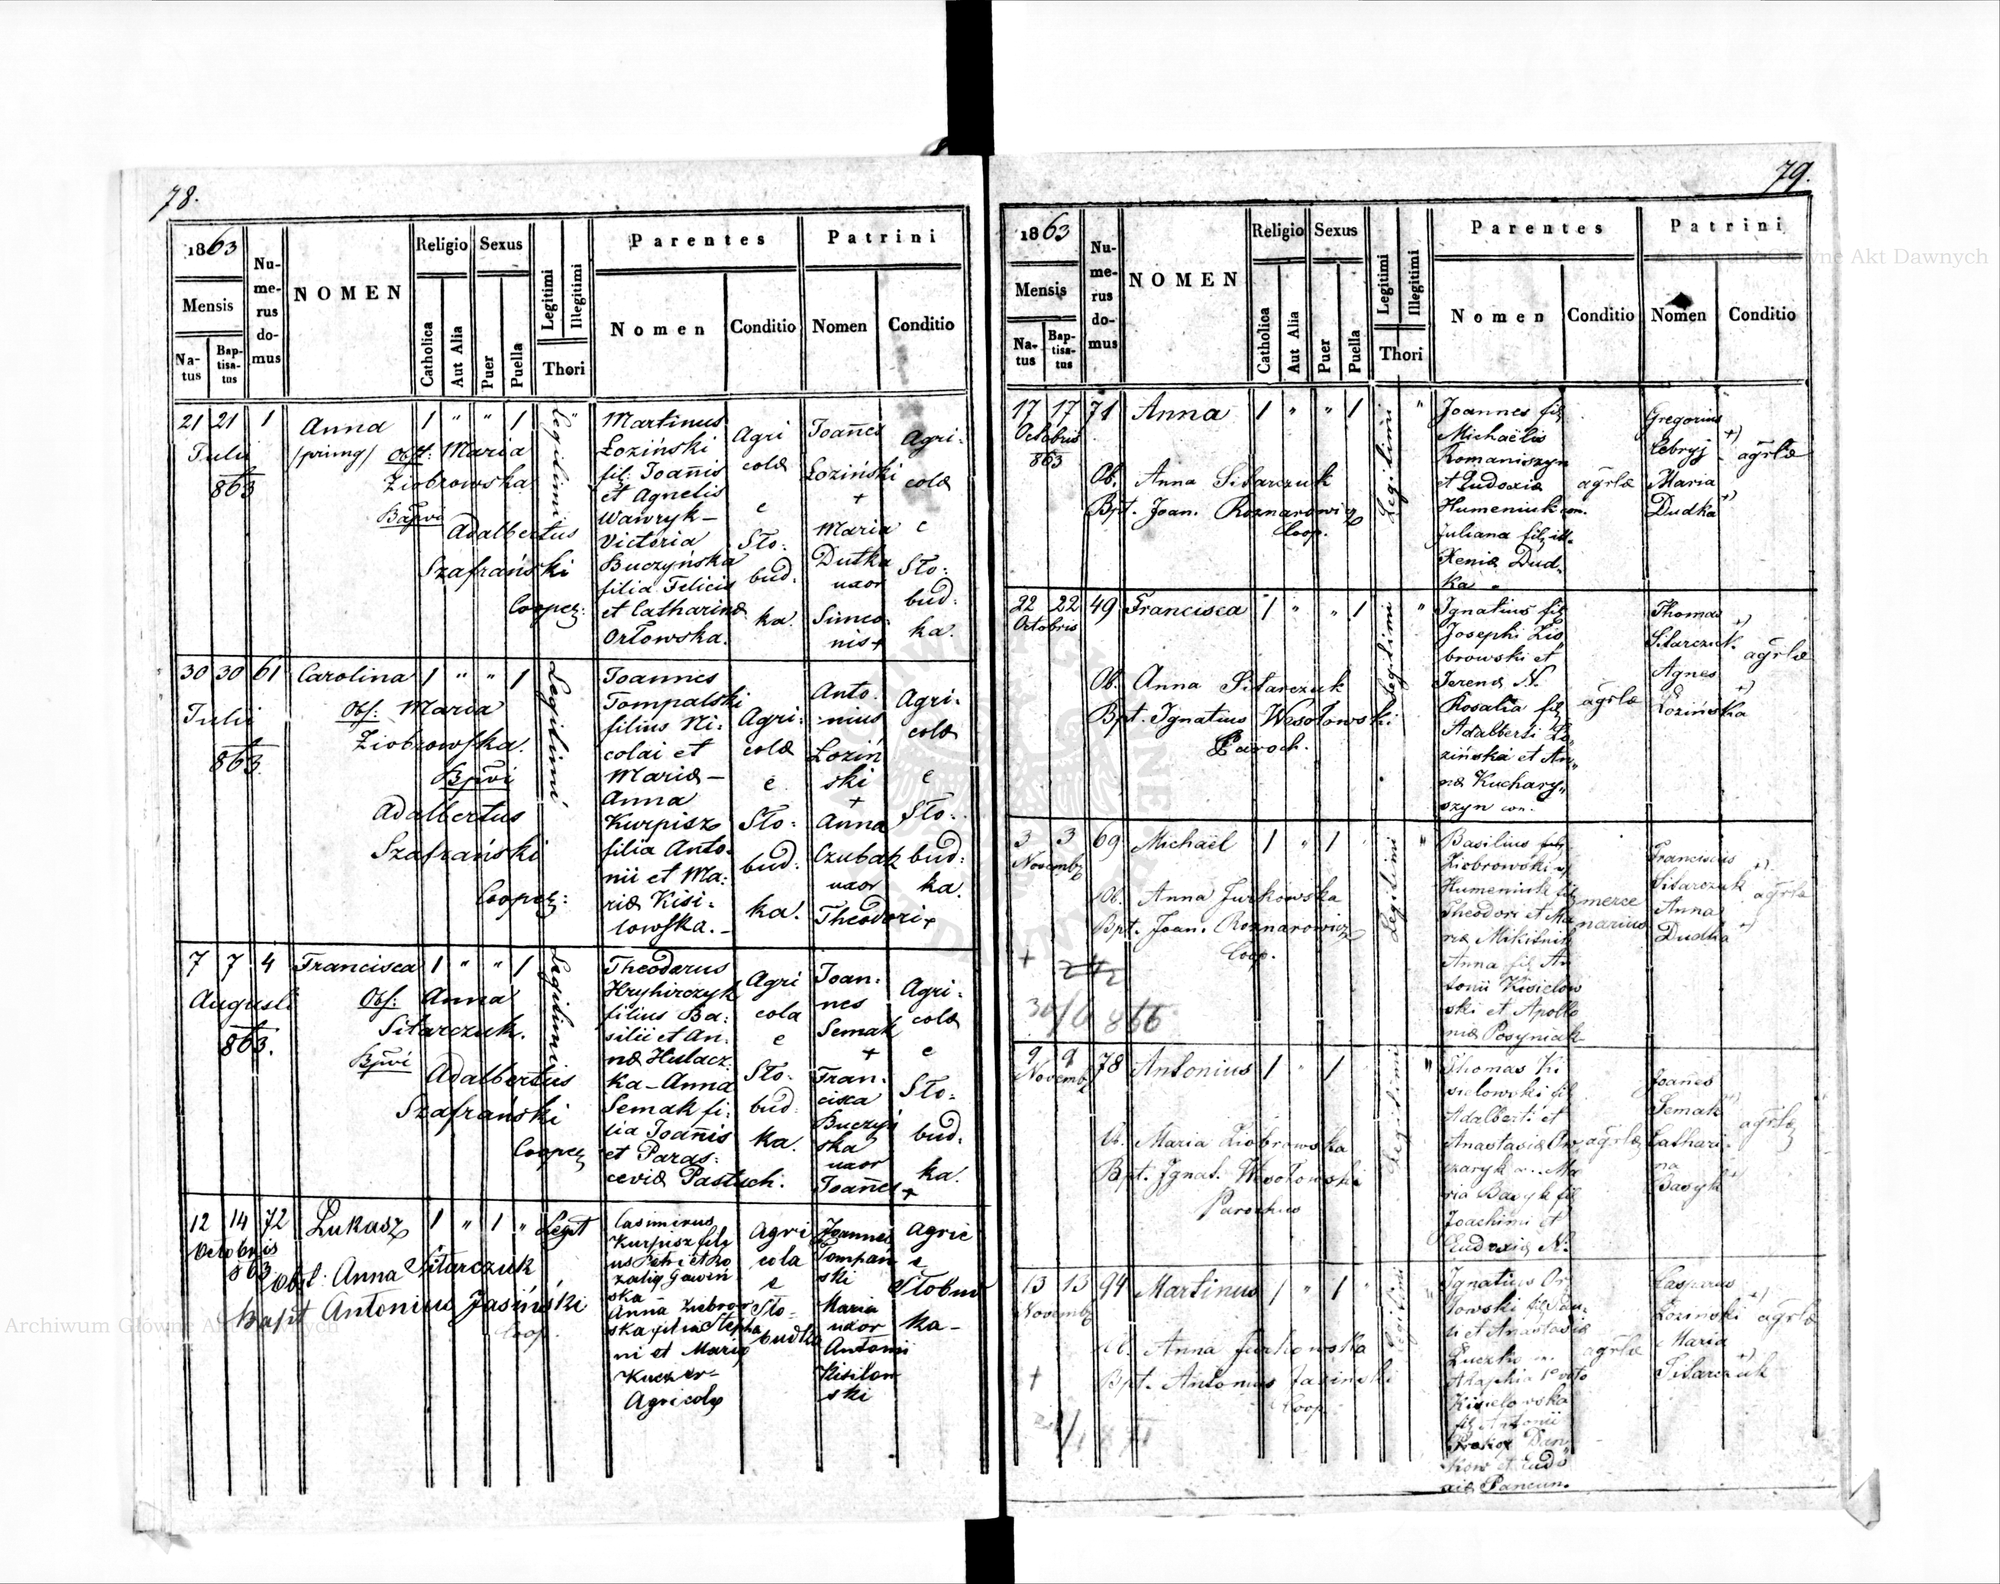 78.
1863
Mensis
Na-
tus
Bap-
tisa-
tus
Nu-
me-
rus
do-
mus
NOMEN
Religio
Catholica
Aut Alia
Sexus
Puer
Puella
Legitimi
Illegitimi
Thori
Parentes
Nomen
Conditio
Patrini
Nomen
Conditio
21 21 1 Anna 1 " " 1
Julii
863
/primg/ Obst: Maria
Ziobrowska
Adalbertus
Szafrański
Legitimi
Martinus
Łoziński
fil. Joañis
et Agnetis
Wawryk –
Victoria
Buczyńska
filia Felicis
et Catharinæ
Orłowska.
Agri
colæ
e
Sło:
bud:
ka.
Joañes
Łoziński
+
Maria
Dutka
uxor
Simeo
nis +
Agri:
colæ
e
Sło:
bud:
ka.
30 30 61 Carolina 1 " " 1
Julii
863.
Obs: Maria
Ziobrowska.
Adalbertus
Szafrański
Legitimi
Joannes
Tompalski
filius Ni:
colai et
Mariæ –
Anna
Kurpisz
filia Anto:
nii et Ma:
riæ Kisi:
lowska. –
Agri:
colæ
e
Sło:
bud:
ka.
Anto:
nius
Łoziń
ski
+
Anna
Czubak
uxor
Theodori +
Agri:
colæ
e
Sło:
bud:
ka.
7 7 4 Francisca 1 " " 1
Augusti
863.
Obs: Anna
Sitarczuk.
Adalbertus
Szafrański
Legitimi
Theodorus
Hryhirczyk
filius Ba:
silii et An:
næ Hulacz
ka – Anna
Semak fi:
lia Joañis
et Paras:
ceviæ Pastuch.
Agri
cola
e
Sło:
bud:
ka.
Joan:
nes
Semak
+
Fran:
cisca
Buczyń
ska
uxor
Joañes +
Agri:
colæ
e
Sło:
bud:
ka.
12 14 72 Łukasz 1 " 1 " Legit
Octobris
863
Obst: Anna Sitarczuk
Bapt Antonius Jasiński
Coop.
Casimirus
Kurpisz fili
us Petri et Ro
zaliæ Gawiń
ska –
Anna Ziobrow
ska filia Stepha
ni et Mariæ
Kuczer –
Agricolæ
Agri
cola
e
Sło-
budka
Joannes
Tompań
ski
Maria
uxor
Antonii
Kisilow
ski
Agric
e
Słobud
ka –
79.
1863
Mensis
Na-
tus
Bap-
tisa-
tus
Nu-
me-
rus
do-
mus
NOMEN
Religio
Catholica
Aut Alia
Sexus
Puer
Puella
Legitimi
Illegitimi
Thori
Parentes
Nomen
Conditio
Patrini
Nomen
Conditio
17 17 71 Anna 1 " " 1 "
Octobris
863
Ob. Anna Sitarczuk
Bpt. Joan. Roznarowicz
Coop.
Legitimi
Joannes fil
Michaëlis
Romaniszyn
et Eudoxiæ
Humeniuk con.
Juliana fil ill.
Xeniæ Dud-
ka
agrlæ
Gregorius
Cebryj
Maria
Dudka
agrlæ
22 22 49 Francisca 1 " " 1 "
Octobris
Ob. Anna Sitarczuk
Bpt. Ignatius Wesołowski
Paroch.
Legitimi
Ignatius fil
Josephi Zio
browski et
Terenæ N.
Rosalia fil
Adalberti Ło
zińska et An-
næ Kuchary-
szyn con.
agrlæ
Thomas
Sitarczuk
Agnes
Łozińska
agrlæ
3 3 69 Michaël 1 " 1 " "
Novemb
Ob. Anna Jurkowska
Bpt. Joan. Roznarowicz
Coop.
+
30/6 866
Legitimi
Basilius
Ziobrowski
Humeniuk fil
Theodori et Ma
riæ Mikitniuk
Anna fil An
tonii Kisielow
ski et Apollo
niæ Posyniak
merce
narius
Franciscus
Sitarczuk
Anna
Dudka
agrlæ
9 9 78 Antonius 1 " 1 "
Novemb
Ob. Maria Ziobrowska
Bpt. Ignat. Wesołowski
Parochus
Legitimi
Thomas Ki
sielowski fil
Adalberti et
Anastasiæ
Ma
ria Basyk fil
Joachimi et
Eudoxiæ N.
agrlæ
Joanes
Semak
Cathari-
na
Basyk
agrlæ
13 13 94 Martinus 1 " 1 "
Novemb
Ob. Anna Jurkowska
Bpt. Antonius Jasinski
Coop.
+
Legitimi
Ignatius Or
łowski fil Pau
li et Anastasiæ
Kisielowska
fil Antonii
agrlæ
Casparus
Łozinski
Maria
Sitarczuk
agrlæ
Archiwum Główne Akt Dawnych
Archiwum Główne Akt Dawnych